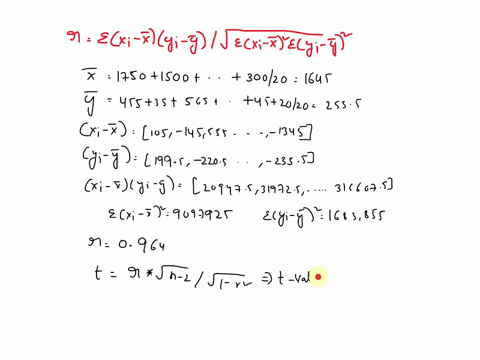 r = Σ(xi-x̄)(yi-ȳ) / √Σ(xi-x̄)²Σ(yi-ȳ)²
x̄ = 1750+1500+ . . + 300/20 = 1645
ȳ = 455+35+565+ . . +45+20/20 = 255.5
(xi-x̄) = [105, -145, 555 . . ., -1345]
(yi-ȳ) = [199.5, -220.5 . . , -235.5]
(xi-x̄)(yi-ȳ) = [20947.5, 31972.5, ..... 316607.5]
Σ(xi-x̄)² = 9097925 Σ(yi-ȳ)² = 1683,855
r = 0.964
t = r*√n-2 / √1-r² => t-val